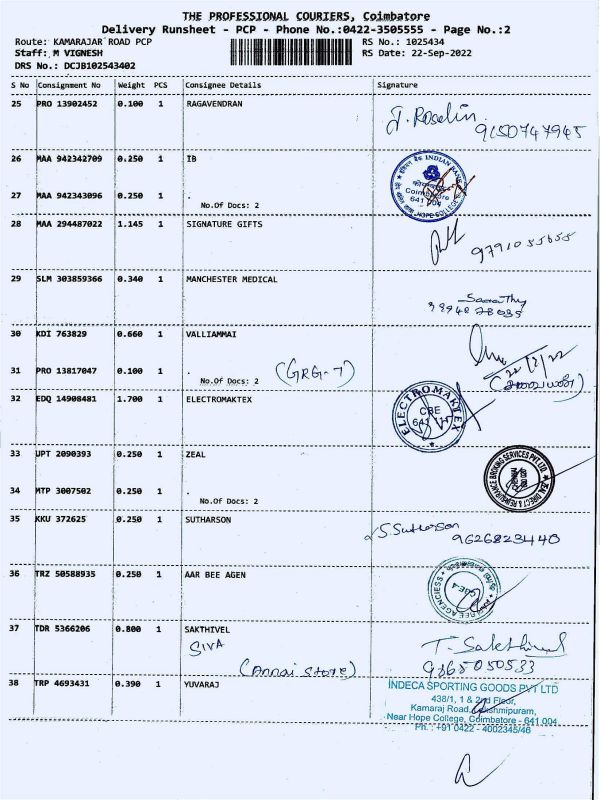 THE PROFESSIONAL COURIERS, Coimbatore
Delivery Runsheet - PCP - Phone No.:0422-3505555 - Page No.:2
Route: KAMARAJAR ROAD PCP RS No.: 1025434
Staff: M VIGNESH RS Date: 22-Sep-2022
DRS No.: DCJB102543402
S No Consignment No Weight PCS Consignee Details Signature
25 PRO 13902452 0.100 1 RAGAVENDRAN
J. Roselin
9150747945
26 MAA 942342709 0.250 1 IB
INDIAN BANK
Coimbatore
641 004
HOPE COLLEGE
27 MAA 942343096 0.250 1 .
No.Of Docs: 2
28 MAA 294487022 1.145 1 SIGNATURE GIFTS
29 SLM 303859366 0.340 1 MANCHESTER MEDICAL
Sarathy
30 KDI 763829 0.660 1 VALLIAMMAI
31 PRO 13817047 0.100 1 . (GRG-7)
No.Of Docs: 2
32 EDQ 14908481 1.700 1 ELECTROMAKTEX
ELECTROMAKTEX
CBE
33 UPT 2090393 0.250 1 ZEAL
34 MTP 3007502 0.250 1 .
No.Of Docs: 2
35 KKU 372625 0.250 1 SUTHARSON
S. Sutharson
9626823440
36 TRZ 50588935 0.250 1 AAR BEE AGEN
37 TDR 5366206 0.800 1 SAKTHIVEL
SIVA T. Sakthivel
(Annai Store) 9865050533
38 TRP 4693431 0.390 1 YUVARAJ
INDECA SPORTING GOODS PVT LTD
438/1, 1 & 2nd Floor,
Kamaraj Road, Lakshmipuram,
Near Hope College, Coimbatore - 641 004
Ph. : +91 0422 - 4002345/46